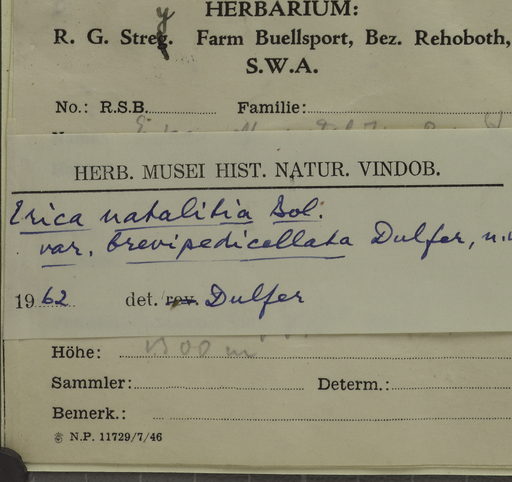 HERBARIUM:
R. G. Strey. Farm Buellsport, Bez. Rehoboth,
S.W.A.
No.: R.S.B. Familie:
HERB. MUSEI HIST. NATUR. VINDOB.
Erica natalitia Bol.
var. brevipedicellata Dulfer, n.v
1962 det. rev. Dulfer
Höhe: 1300 m
Sammler: Determ.:
Bemerk.:
N.P. 11729/7/46